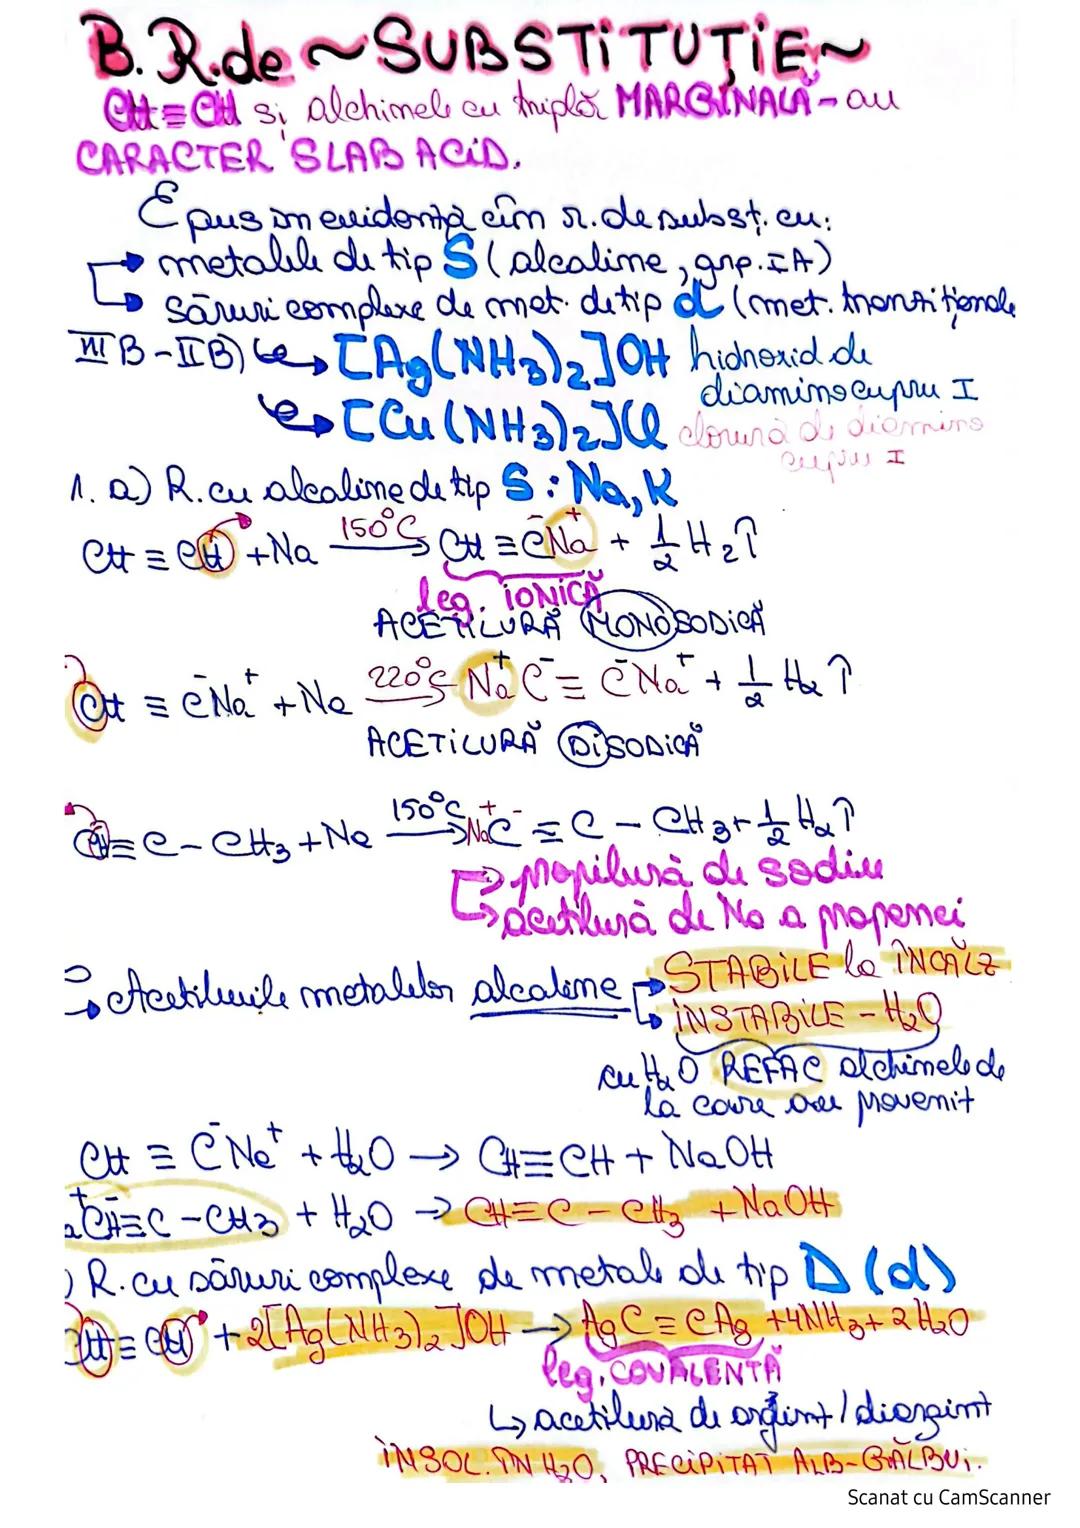 B. R. de ~SUBSTiTUȚiE~
CH≡CH și alchinele cu triplă MARGINALĂ - au
CARACTER SLAB ACiD.
E pus în evidență cîn r. de subst. cu:
metalele de tip S (alcaline, grp. IA)
săruri complexe de met. de tip d (met. tranziționale
IIIB - IIB) [Ag(NH3)2]OH hidroxid de
diaminocupru I
[Cu(NH3)2]Cl clorură de diamino
cupru I
1. a) R. cu alcaline de tip S: Na, K
CH ≡ CH + Na 150°C → CH ≡ C⁻Na⁺ + 1/2 H2↑
leg. iONiCĂ
ACETiLURĂ MONOSODiCĂ
CH ≡ C⁻Na⁺ + Na 220°C → Na⁺C⁻ ≡ C⁻Na⁺ + 1/2 H2↑
ACETiLURĂ DiSODiCĂ
CH≡C-CH3 + Na 150°C → Na⁺C⁻ ≡ C - CH3 + 1/2 H2↑
propilură de sodiu
acetilură de Na a propenei
Acetilurile metalelor alcaline STABiLE la ÎNCĂLZ
iNSTABiLE - H2O
cu H2O REFAC alchinele de
la care au provenit
CH ≡ C⁻Na⁺ + H2O → CH≡CH + NaOH
a⁺C⁻H≡C-CH3 + H2O → CH≡C-CH3 + NaOH
) R. cu săruri complexe de metale de tip D (d)
CH≡CH + 2[Ag(NH3)2]OH → AgC≡CAg + 4NH3 + 2H2O
leg. COVALENTĂ
↳ acetilură de argint / diargint
iNSOL. ÎN H2O, PRECiPiTAT ALB-GĂLBUi.
Scanat cu CamScanner